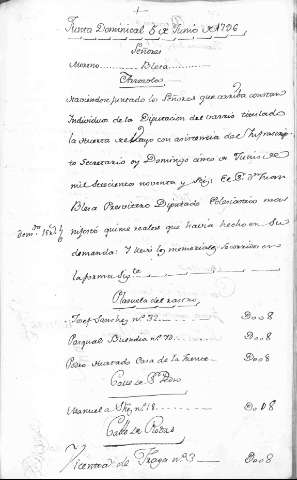 Junta Dominical 5 de Junio de 1796
Señores
Moreno Blesa
Tarazona
Haviendose juntado los Señores que arriba constan
Individuos de la Diputacion del varrio titulado
la Huerta del Bayo con asistencia del Infraescrip
to Secretario oy Domingo cinco de Junio de
mil setecientos noventa y seis: El Sr. Dn. Juan
Blesa Presvitero Diputado Eclesiastico mani
festó quince reales que havia hecho en su
demanda: y leyó los memoriales socorridos en
la forma Sigte.
Plazuela del rastro
Josef Sanchez nº. 32 D008
Pasqual Buendia nº. 70 D008
Pedro Hurtado Casa de la Fuente D008
Calle de Sn. Pedro
Manuela nº. 18 D008
Calle de Rodas
Vicenta de Fraga nº 3 D008